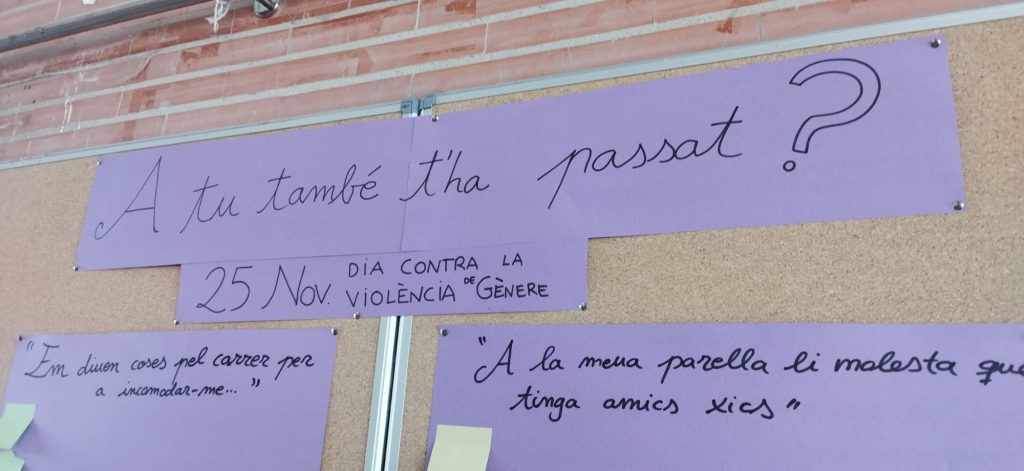 A tu també t'ha passat?
25 Nov. DIA CONTRA LA
VIOLÈNCIA DE GÈNERE
"Em diuen coses pel carrer per
a incomodar-me..."
"A la meua parella li molesta que
tinga amics xics"